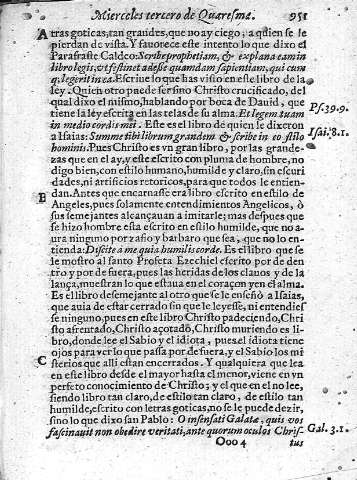 Miercoles tercero de Quaresma. 951
A tras goticas, tan grandes, que no ay ciego, a quien se le
pierdan de vista. Y fauorece este intento lo que dixo el
Parafraste Caldeo: Scribe prophetiam, & explana eam in
libro legis, vt festinet adesse quamdam sapientiam, qui cum
q; legerit in ea. Escriue lo que has visto en este libro de la
ley. Quien otro puede ser sino Christo crucificado, del
qual dixo el mismo, hablando por boca de Dauid, que
tiene la ley escrita en las telas de su alma. Et legem tuam
Ps. 39. 9.
in medio cordis mei. Este es el libro de quien le dixeron
a Isaias: Summe tibi librum grandem & scribe in eo stilo
Isai. 8. 1.
hominis. Pues Christo es vn gran libro, por las grande-
zas que en el ay, y este escrito con pluma de hombre, no
digo bien, con estilo humano, humilde y claro, sin escuri
dades, ni artificios retoricos, para que todos le entien-
dan. Antes que encarnasse era libro escrito en estilo de
B Angeles, pues solamente entendimientos Angelicos, ò
sus semejantes alcançauan a imitarle; mas despues que
se hizo hombre esta escrito en estilo humilde, que no a-
aura ninguno por zafio y barbaro que sea, que no lo en-
tienda: Discite a me quia humilis corde. Es el libro que se
le mostro al santo Profeta Ezechiel escrito por de den-
tro y por de fuera, pues las heridas de los clauos y de la
lança, muestran lo que estaua en el coraçom y en el alma
Es el libro desemejante al otro que se le enseñò a Isaias,
que auia de estar cerrado sin que le leyesse, ni entendies
se ninguno, pues en este libro Christo padeciendo, Chri
sto afrentado, Christo açotado, Christo muriendo es li-
bro, donde lee el Sabio y el idiota, pues el idiota tiene
ojos para ver lo que passa por de fuera, y el Sabio los mi
C sterios que alli estan encerrados. Y qualquiera que lea
en este libro desde el mayor hasta el menor, viene en vn
perfeto conocimiento de Christo; y el que en el no lee,
siendo libro tan claro, de estilo tan claro, de estilo tan
humilde, escrito con letras goticas, no se le puede dezir,
sino lo que dixo san Pablo: O insensati Galatæ, quis vos
fascinauit non obedire veritati, ante quorum oculos Chris-
Gal. 3. 1.
Ooo 4 tus